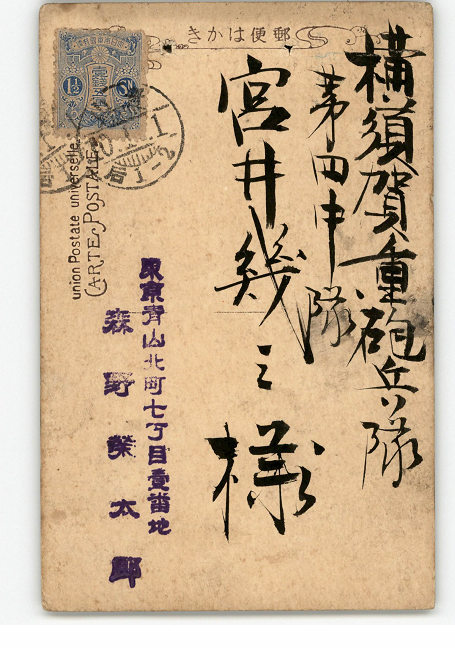 郵便はかき
横須賀重砲兵隊
第四中隊
宮井幾三様
東京青山北町七丁目壹番地
森野榮太郎
union Postale universelle.
CARTE POSTALE
1½